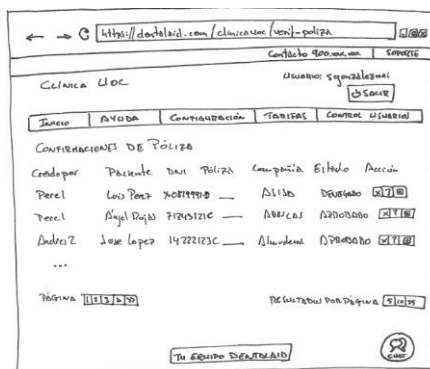 https://dentalaid.com/clinicauoc/verif-poliza
Contacto 900.xxx.xxx | SOPORTE
CLÍNICA UOC
USUARIO: sgonzalezmai
SALIR
INICIO | AYUDA | CONFIGURACIÓN | TARIFAS | CONTROL USUARIOS
CONFIRMACIONES DE PÓLIZA
Creado por Paciente DNI Póliza Compañía Estado Acción
Perel Luis Perez ASISA DENEGADO X ?
Perel Ángel Rojas 71243121C APROBADO X ?
Andrei2 Jose Lopez 14222123C Almudena APROBADO X ?
...
PÁGINA 1 2 3 > >>
RESULTADOS POR PÁGINA 5 10 25
TU EQUIPO DENTALAID
CHAT